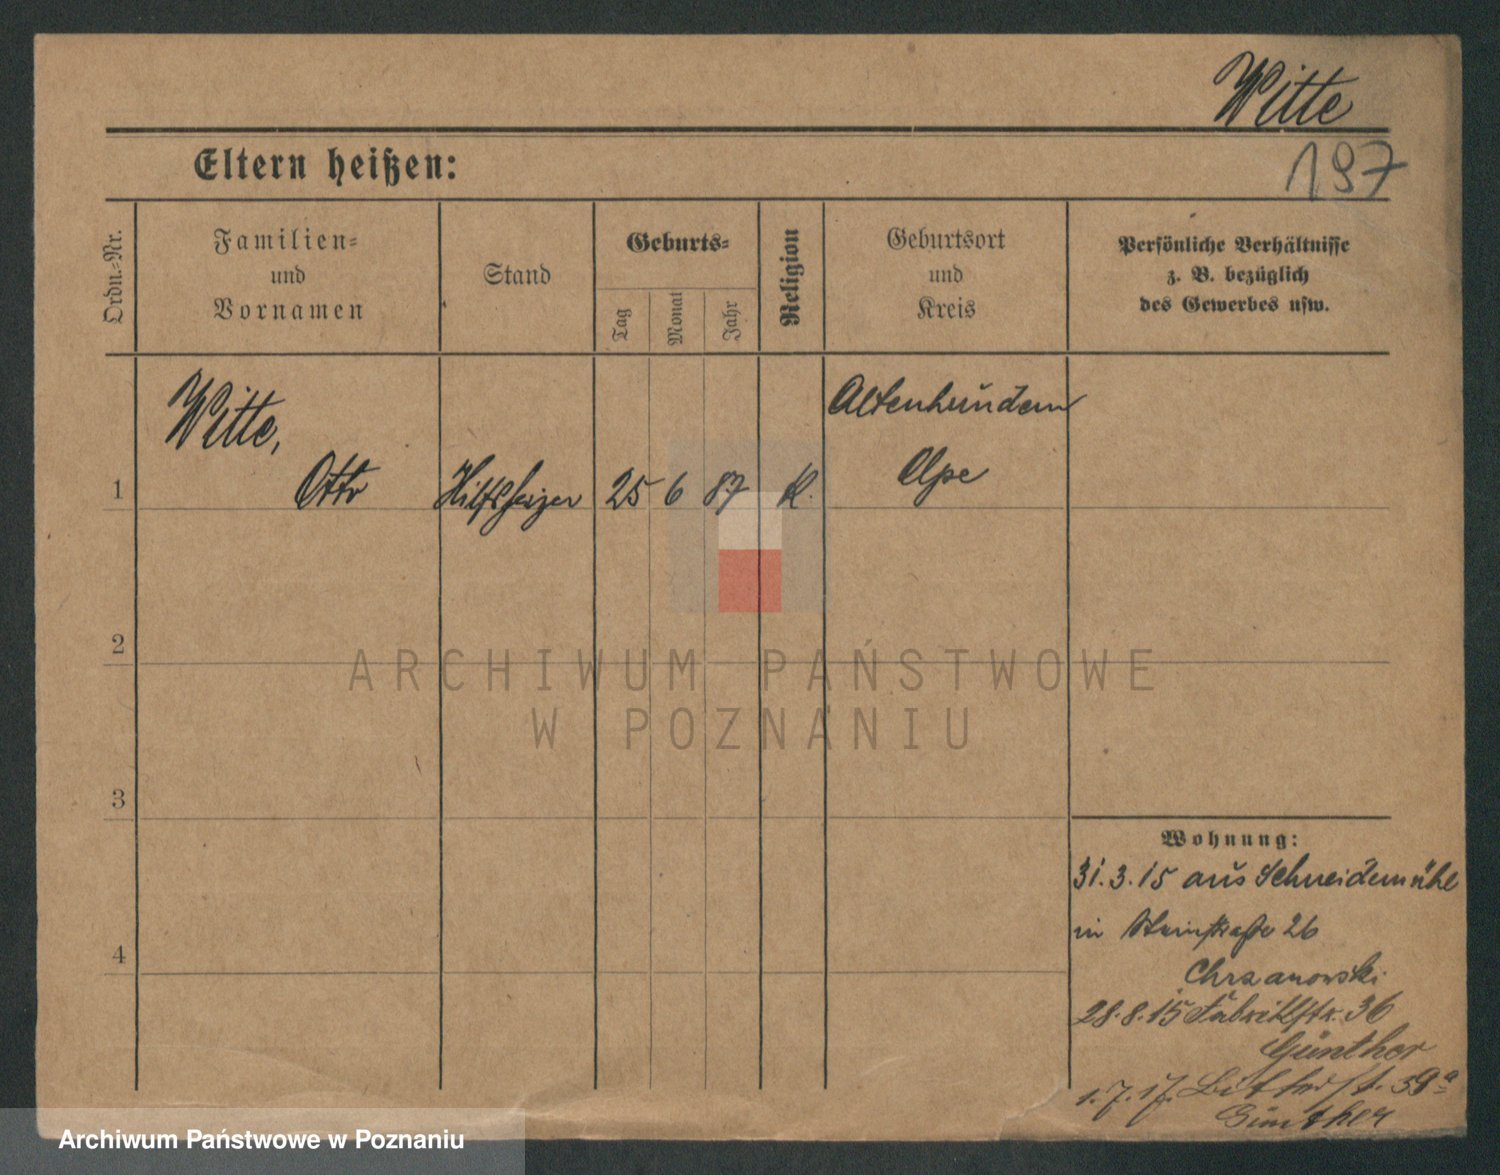 Witte
197
Eltern heißen:
Ordn.-Nr.
Familien-
und
Vornamen
Stand
Geburts-
Tag
Monat
Jahr
Religion
Geburtsort
und
Kreis
Persönliche Verhältnisse
z. B. bezüglich
des Gewerbes usw.
Witte,
Altenhundem
1 Otto Hilfsheizer 25 6 87 K. Olpe
2
ARCHIWUM PAŃSTWOWE
W POZNANIU
3
Wohnung:
31.3.15 aus Schneidemühl
in Steinstraße 26
4
Chrzanowski
28.8.15 Fabrikstr. 36
Günther
1.7.17. 39a
Günther
Archiwum Państwowe w Poznaniu